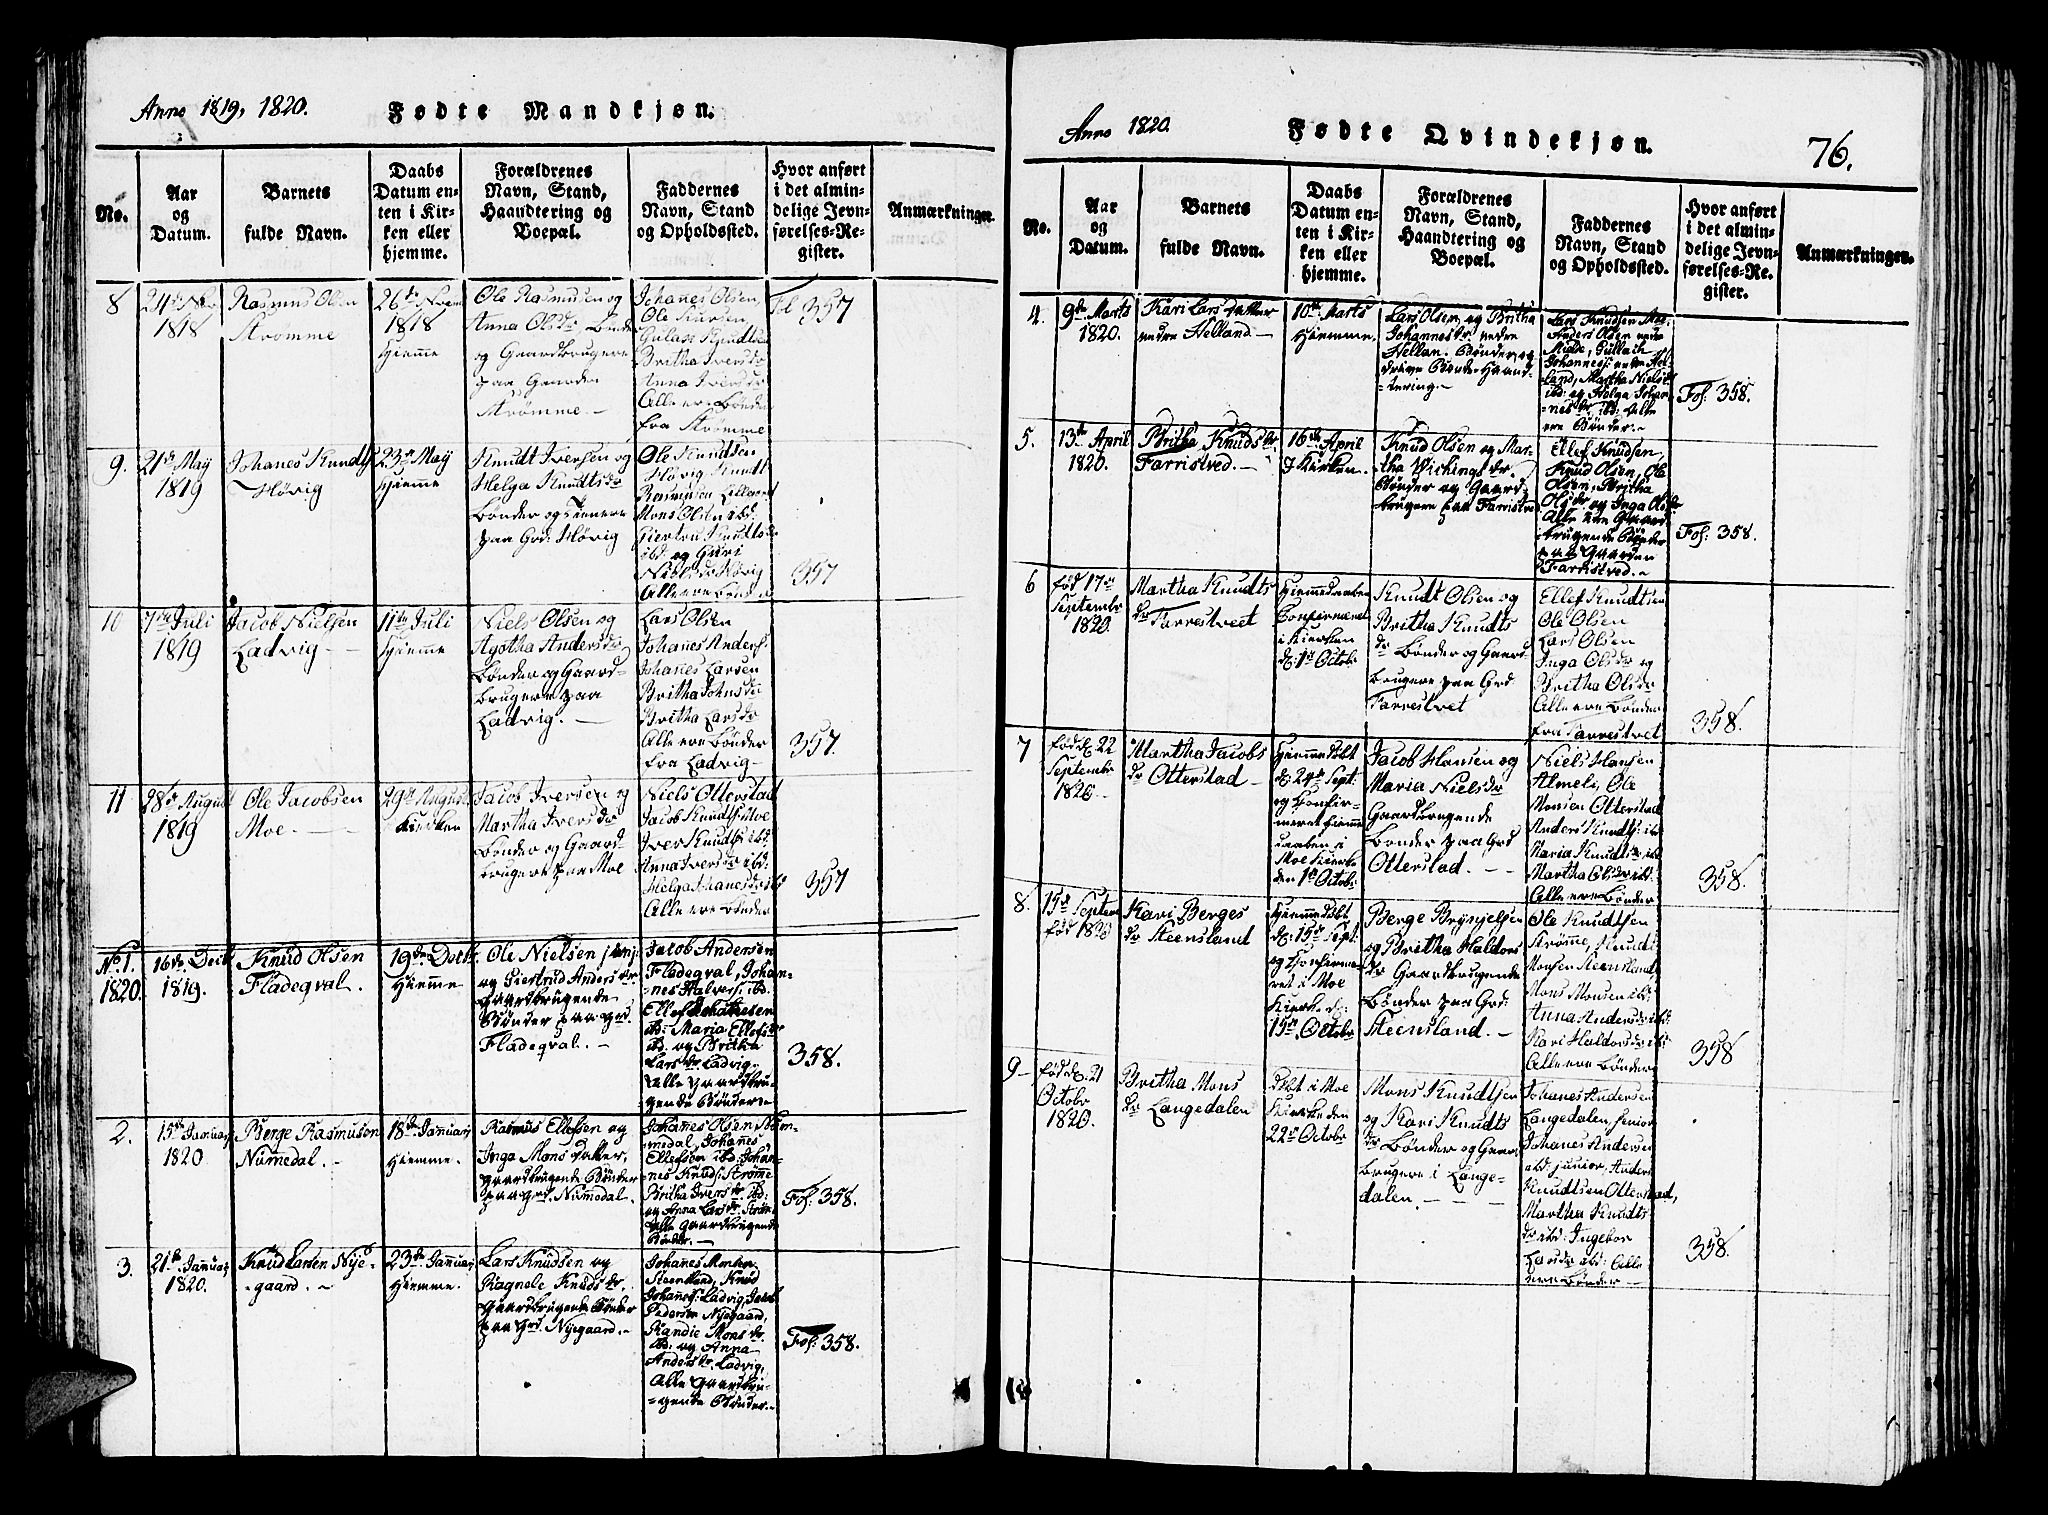 Anno 1819, 1820. Fødte Mandkjøn.
No.
Aar
og
Datum.
Barnets
fulde Navn.
Daabs
Datum en-
ten i Kir-
ken eller
hjemme.
Forældrenes
Navn, Stand,
Haandtering og
Boepæl.
Faddernes
Navn, Stand
og Opholdssted.
Hvor anført
i det almin-
delige Jevn-
førelses-Re-
gister.
Anmærkninger.
8
24de Nov
1818
Rasmus Olsen
Strömme
26de Novem
1818
Hjemme
Ole Rasmusen og
Anna Olsdr Bönder
og Gaardbrugere
paa Gaarden
Strömme.
Johanes Olsen,
Ole Iversen
Gulach Knudtsen
Britha Iversdr
Anna Iversdr
Alle ere Bönder
fra Strömme
Fol 357
9.
21de May
1819
Johanes Knudts
Hövig
23de May
Hjemme
Knudt Iversen og
Helga Knudtsdr
Bönder og tienere
paa Grd: Hövig
Ole Knudtsen
Hövig Knudt
Rasmusen
Mons Olsen ibd:
Giertru Knudtsdr
ibd: og Guri
Nielsdr Hövig
Alle ere Bönder
357
10
7de Juli
1819
Jacob Nielsen
Ladvig
11te Juli
Hjemme
Niels Olsen og
Agotha Andersdr
Bönder og Gaard-
brugere paa
Ladvig.
Lars Olsen
Johanes Anders:
Johanes Larsen
Britha Johnsdr
Britha Larsdr
Alle ere Bönder
fra Ladvig
357.
11
28de August
1819
Ole Jacobsen
Moe.
29de August
Kirken
Jacob Iversen og
Martha Iversdr
Bönder og Gaard
brugere paa Moe
Niels Otterstad
Jacob Knudtsen Moe
Iver Knudts ibd:
Anna Iversdr ibd:
Helga Johanesdr ibd
Alle ere Bönder
357
No 1.
1820.
16de Decbr
1819.
Knud Olsen
Fladeqval.
19de Decbr.
Hjemme
Ole Nielsen junj
og Giertrud Andersdr.
gaardbrugende
Bönder paa grd.
Fladeqval.
Jacob Andersen
Fladeqval, Johan-
nes Halvers: ibd.
Ellef Johannesen
ibd: Maria Ellefsdr
ibd. og Britha
Larsdr Ladvig.
Alle gaardbru-
gende Bönder.
358.
2.
15de Januarj
1820
Berge Rasmusen
Nümedal.
18de Januarj
Hjemme.
Rasmus Ellefsen og
Inga Mons datter,
gaardbrugende Bönder
paa grd. Nümedal.
Johannes Olsen Nüm-
medal, Johanes
Ellefsen ibd: Johan-
nes Knuds: Strömme
Britha Iversdr ibd:
og Anna Larsdr. Ström
alle gaardbrugende
Bönder.
Fol: 358.
3.
21de Januarj
1820.
Knud Larsen Nye-
gaard.
23de Januarj
Hjemme.
Lars Knudsen og
Ragnele Knudsdr
gaardbrugende Bönder
paa Grd. Nyegaard.
Johannes Monsen
Steensland, Knud
Johannes: Ladvig, Jacob
Pedersen Nyegaard,
Randie Monsdr.
ibd: og Anna
Andersdr. Ladvig,
Alle Gaardbru-
gende Bönder.
Fol: 358.
Anno 1820. Fødte Qvindekjøn. 76.
No.
Aar
og
Datum.
Barnets
fulde Navn.
Daabs
Datum en-
ten i Kir-
ken eller
hjemme.
Forældrenes
Navn, Stand,
Haandtering og
Boepæl.
Faddernes
Navn, Stand
og Opholdssted.
Hvor anført
i det almin-
delige Jevn-
førelses-Re-
gister.
Anmærkninger.
4.
9de Marts
1820.
Kari Lars datter
nedre Helland
10de Marts
Hjemme.
Lars Olsen og Britha
Johannesdr. nedre
Hellan. Bönder og
drive Bonde-Haand-
tering.
Lars Knudsen
Anders Olsen nedre
Gullach
Johannes: nedre Hel-
land, Martha Nielsdr
ibd: og Helga Johan-
nesdr ibd: alle
ere Bönder.
Fol: 358.
5.
13de April
1820.
Britha Knudsdr
Farristved.
16de April
I Kirken.
Knud Olsen og Mar-
tha Vichingsdr.
Bönder og Gaard-
brugere paa Farristved
Ellef Knudsen,
Knud Olsen, Ole
Olsen, Britha
Olsdr og Inga Olsdr
Alle ere Gaard
brugende Bönder
paa Gaarden
Farristved.
Fol: 358.
6
föd 17de
Septembr
1820.
Martha Knudts
dr Farrestvet
Hjemmedaaben
Confirmeret
i Kirken
d: 1te Octobr
Knudt Olsen og
Britha Knudts
dr Bönder og Gaard
brugere paa Grd
Farrestvet
Ellef Knudtsen
Ole Olsen
Lars Olsen
Inga Olsdr og
Britha Olsdr
Alle ere Bönder
fra Farrestvet
358.
7
föd d. 22
Septembr
1820.
Martha Jacobs
dr Otterstad
Hjemmedöbt
d: 24de Sept:
og Confir-
meret Hjemme
daaben i
Moe Kirke
den 1te Octobr
Jacob Hansen og
Maria Nielsdr
Gaardbrugende
Bönder paa Grd
Otterstad.
Niels Hansen
Almeli, Ole
Monsen Otterstad
Anders Knudts: ibd
Maria Knudtsdr ibd
Martha Olsdr ibd:
Alle ere Bönder
358.
8.
15de Septem
föd 1820
Kari Berges
dr Steensland
Hjemmedöbt
d: 15de Sept:
og Confirme-
ret i Moe
Kirke d:
15de Octobr
Berge Brynjelsen
og Britha Haldors
dr Gaardbrugende
Bönder paa Grd:
Steensland.
Ole Knudtsen
Strömme, Knud
Monsen Steensland
Mons Monsen ibd:
Anna Andersdr ibd.
Kari Haldorsdr ibd:
Alle ere Bönder
358
9
föd d. 21
Octobr
1820.
Britha Mons
dr Langedalen
Döbt i Moe
Kirke den
22de Octobr
Mons Knudtsen
og Kari Knudts
dr Bönder og Gaard
brugere i Lange-
dalen.
Johanes Andersen
Langedalen, senior
Johanes Andersen
ibd: junior, Anders
Knudtsen Otterstad,
Martha Knudts
dr ibd: Ingebor
Larsdr ibd: Alle
ere Bönder
358.